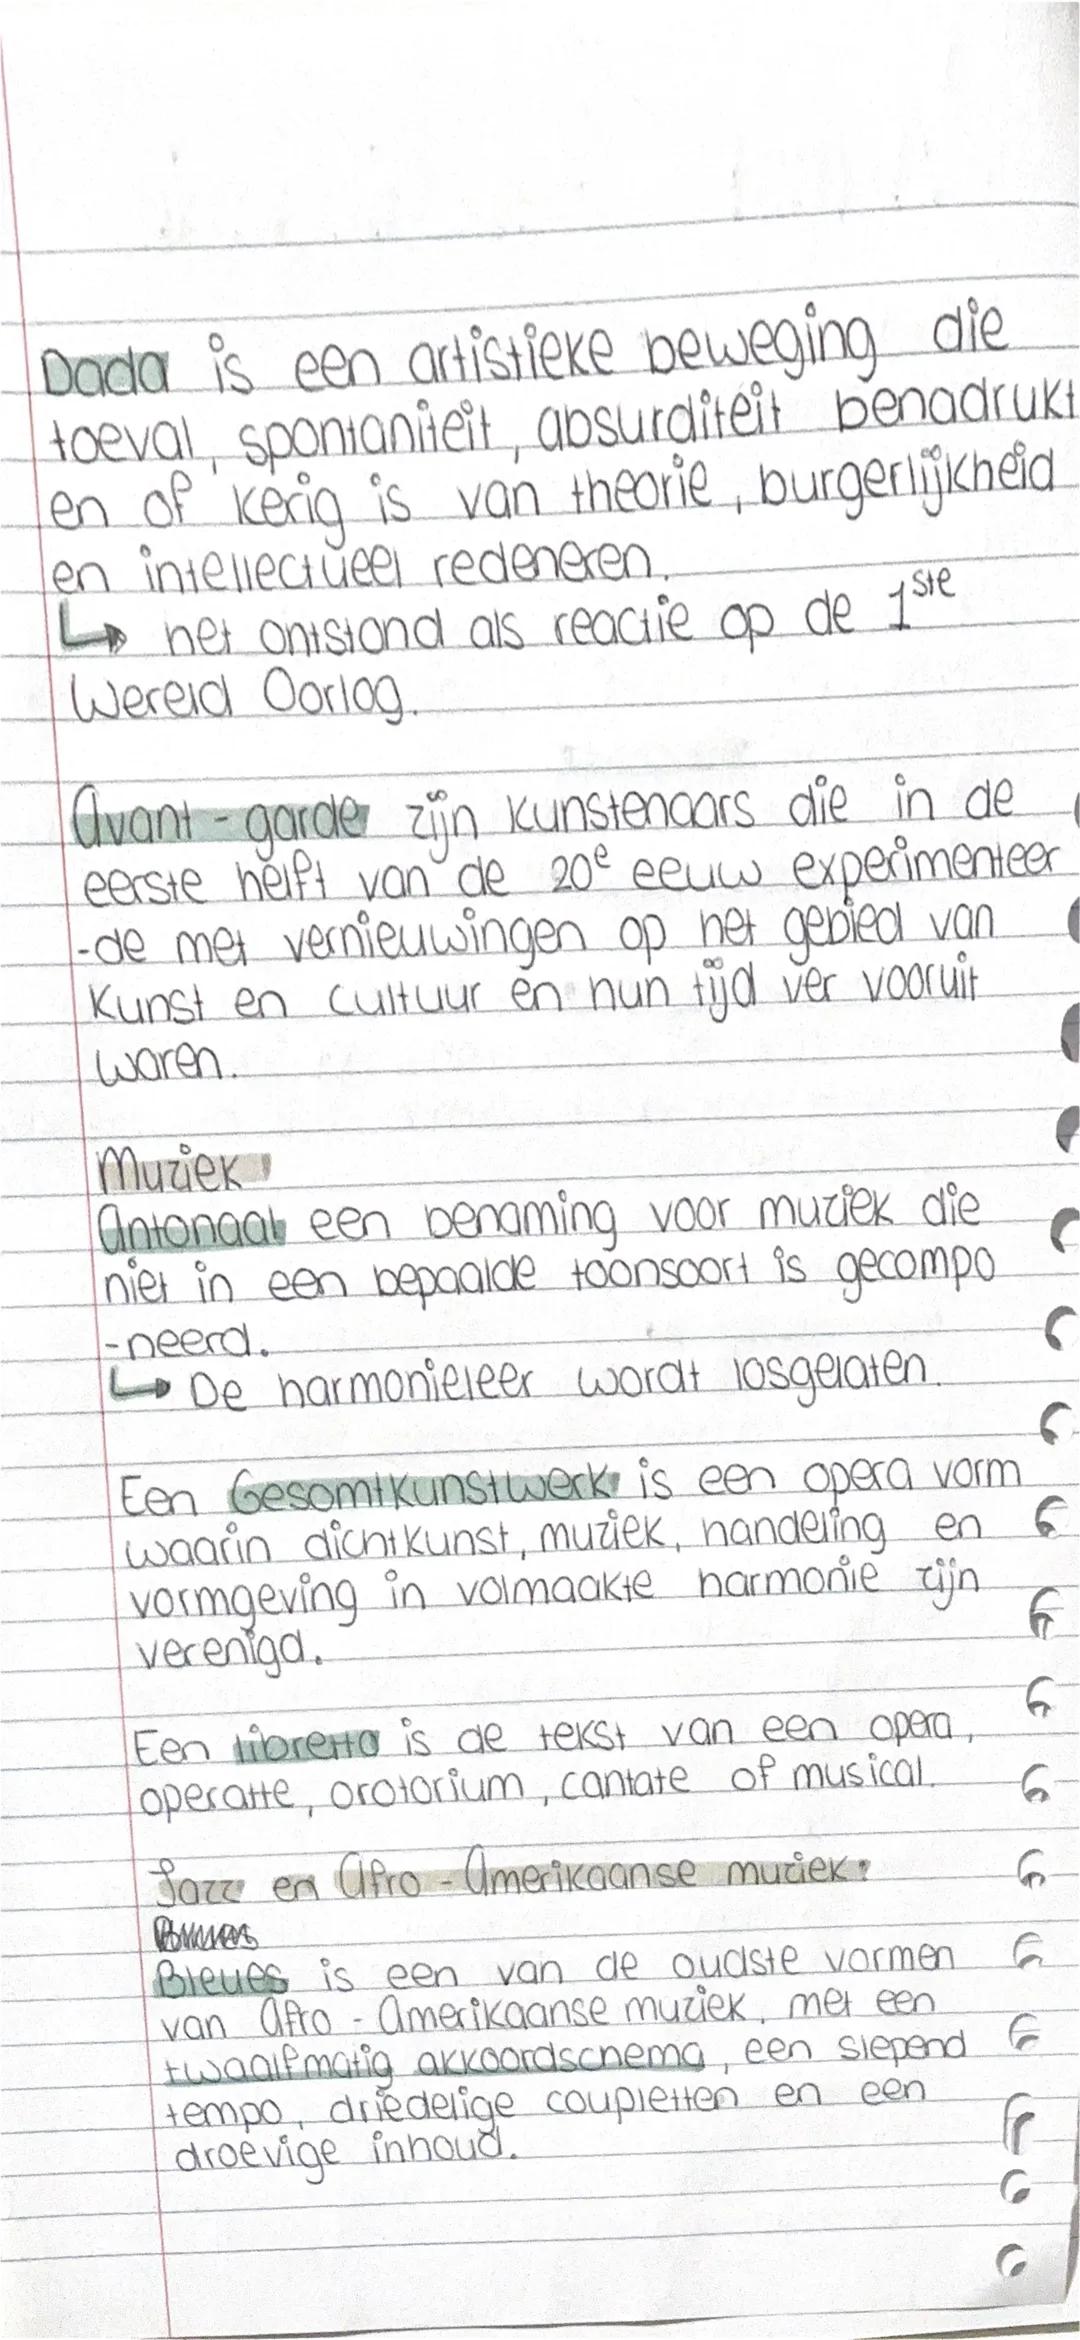 Dada is een artistieke beweging die
toeval, spontaniteit, absurditeit benadrukt
en of kerig is van theorie, burgerlijkheid
en intellectueel redeneren.
↳ het ontstond als reactie op de 1ste
Wereld Oorlog.
Avant-garde zijn kunstenaars die in de
eerste helft van de 20e eeuw experimenteer
-de met vernieuwingen op het gebied van
Kunst en cultuur en hun tijd ver vooruit
waren.
Muziek
Antonaal een benaming voor muziek die
niet in een bepaalde toonsoort is gecompo
-neerd.
↳ De harmonieleer wordt losgelaten.
Een Gesamtkunstwerk is een opera vorm
waarin dichtkunst, muziek, handeling en
vormgeving in volmaakte harmonie zijn
verenigd.
Een libretto is de tekst van een opera,
operatte, oratorium, cantate of musical.
Jazz en Afro-Amerikaanse muziek:
Bleues is een van de oudste vormen
van Afro-Amerikaanse muziek, met een
twaalfmatig akkoordschema, een slepend
tempo, driedelige coupletten en een
droevige inhoud.